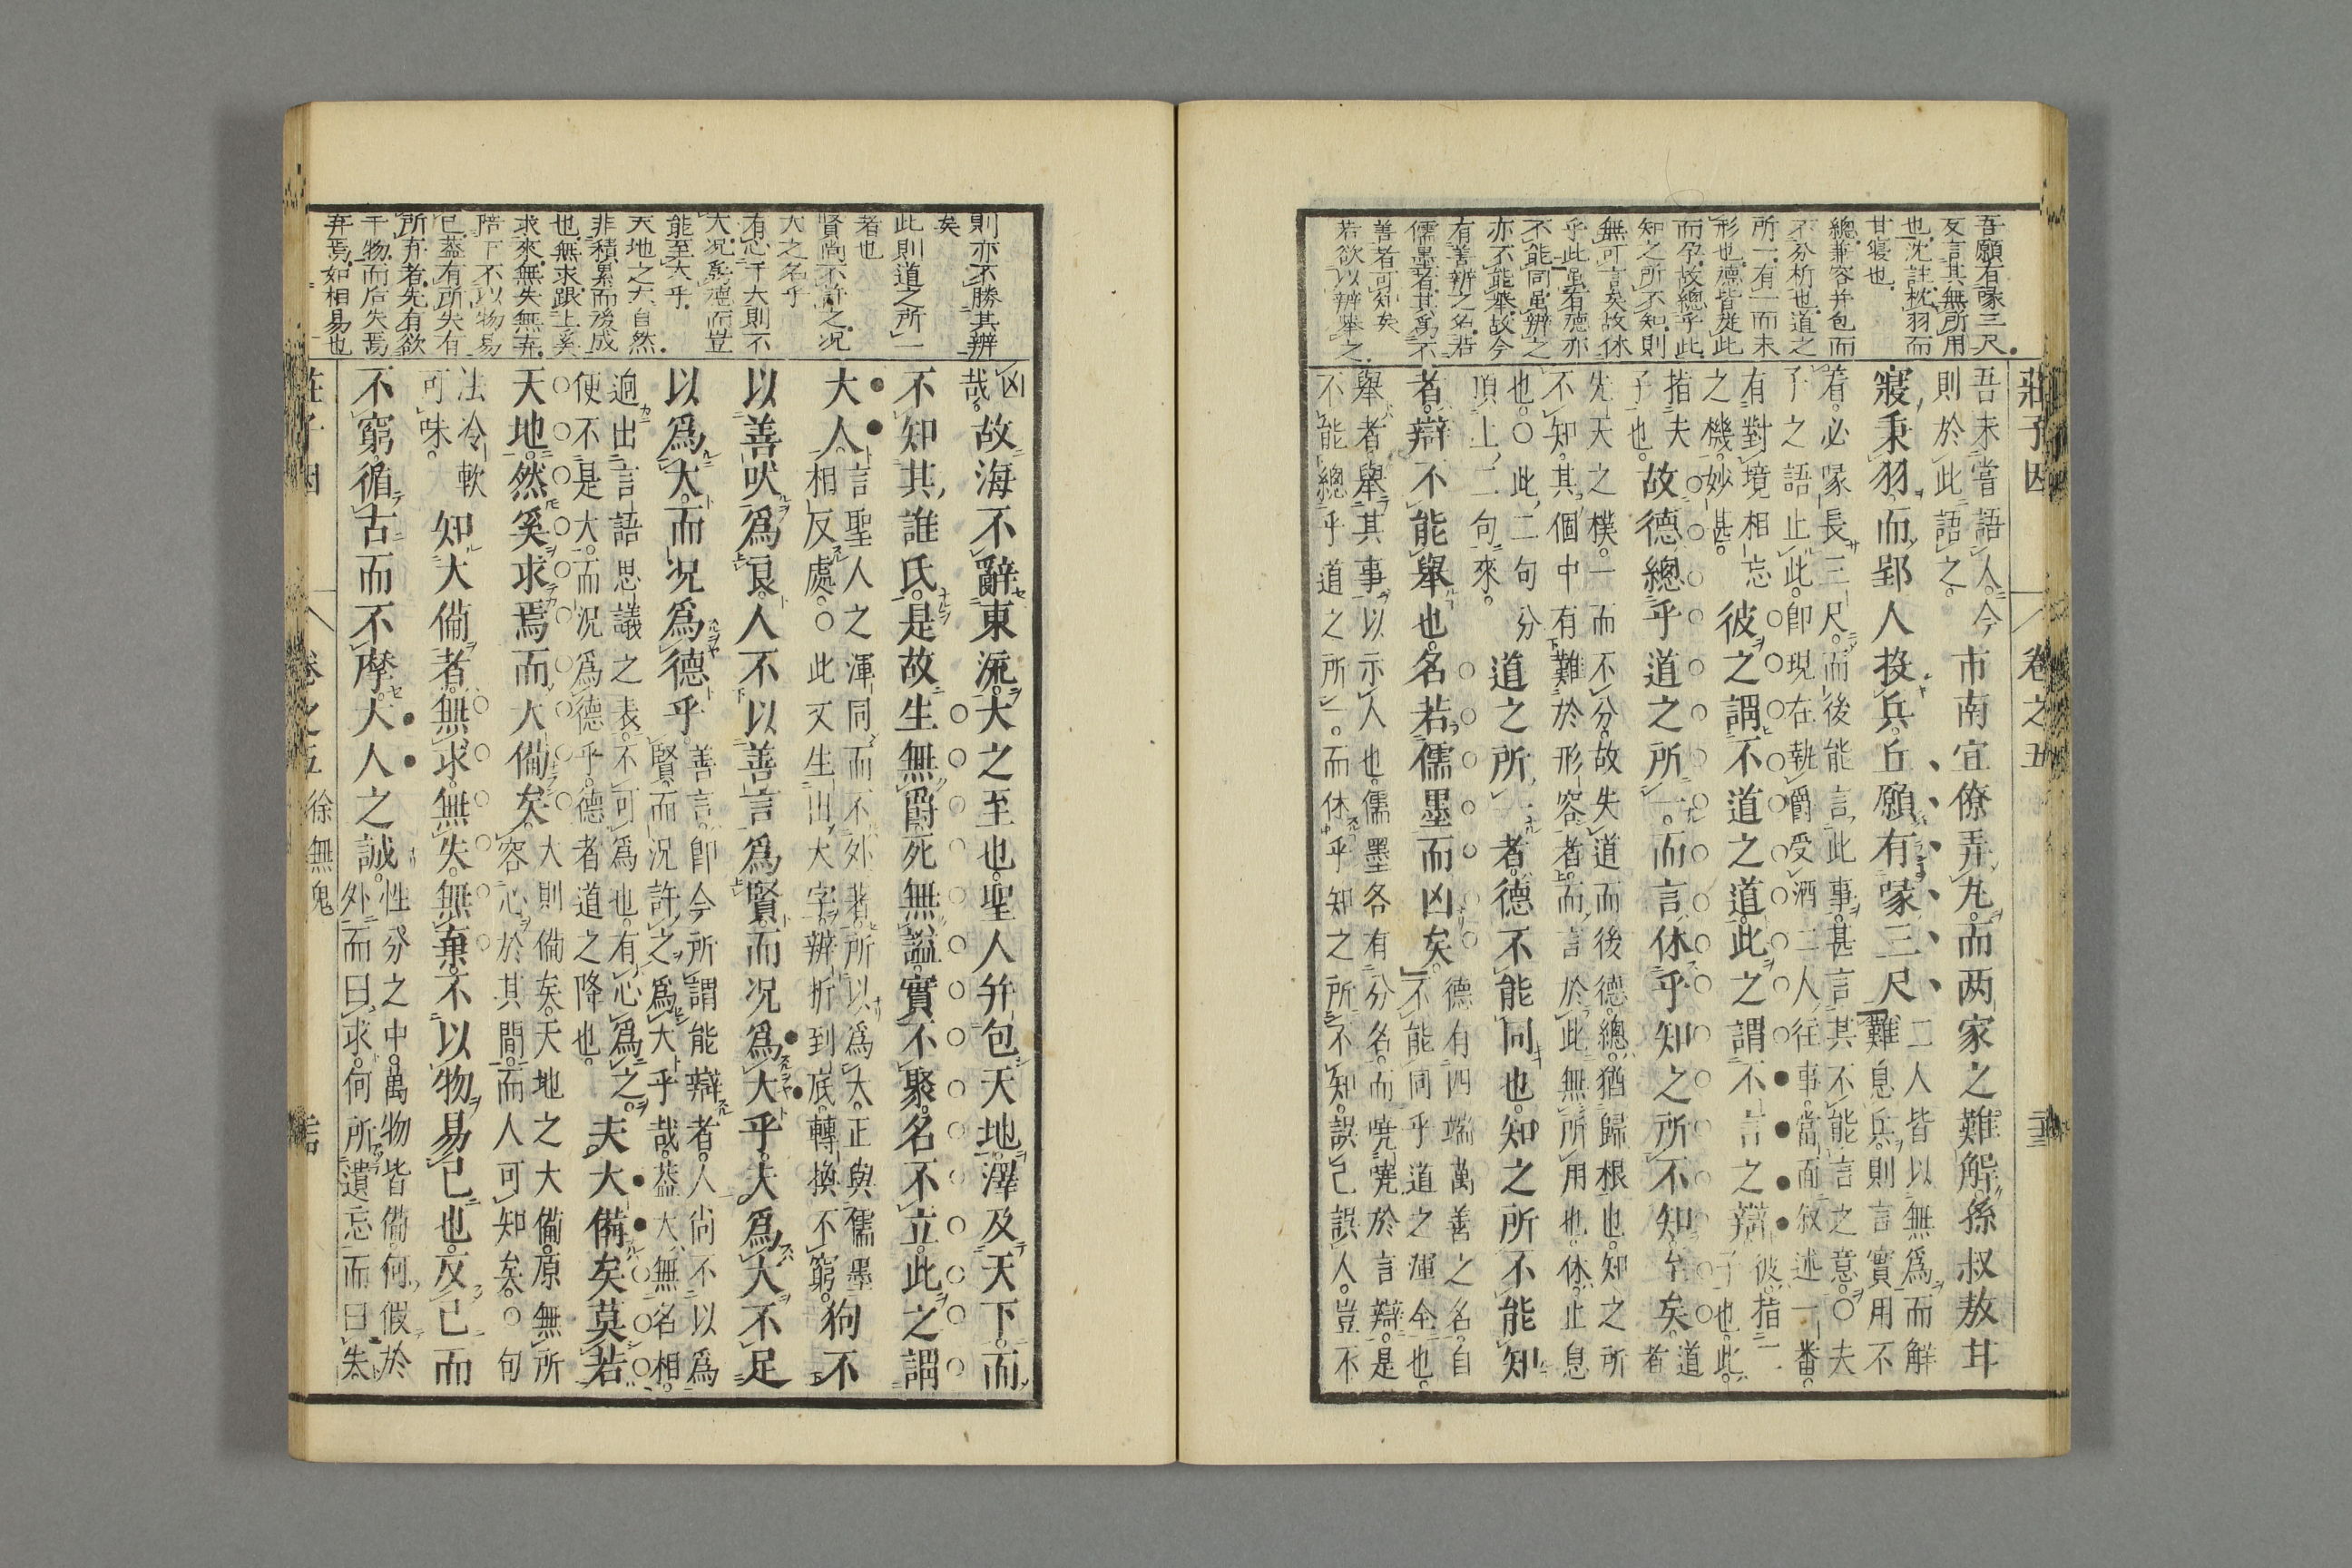 莊子因
卷之五
吾願有喙三尺
反言其無所用
也沈註枕羽而
甘寢也
總兼容并包而
不分析也道之
所一有一而未
形也德皆從此
而孕故總乎此
知之所不知則
無可言矣故休
乎此雖有德亦
不能同雖辨之
亦不能舉故今
有善辨之名若
儒墨者其爲不
善者可知矣
若欲以辨舉之
吾未嘗語人今
則於此語之
市南宜僚弄丸而两家之難解孫叔敖甘
寢秉羽而郢人投兵丘願有喙三尺
二人皆以無爲而解
難息兵則言實用不
着必喙長三尺而後能言此事甚言其不能言之意○夫
子之語止此卽現在執爵受酒二人往事當面敘述一番
有對境相忘
之機妙甚
彼之謂不道之道此之謂不言之辯
彼指二
子也此
指夫
子也
故德總乎道之所一而言休乎知之所不知至矣
道
者
先天之樸一而不分故失道而後德總猶歸根也知之所
不知其個中有難於形容者而言於此無所用也休止息
也○此二句分
頂上二句來
道之所一者德不能同也知之所不能知
者辯不能舉也名若儒墨而凶矣
德有四端萬善之名自
不能同乎道之渾仝也
舉者舉其事以示人也儒墨各有分名而嘵嘵於言辯是
不能總乎道之所一而休乎知之所不知誤己誤人豈不
則亦不勝其辨
矣
此則道之所一
者也
賢尚不許之况
大之名乎
有心于大則不
大况爲德而豈
能至大乎
天地之大自然
非積累而後成
也無求跟上奚
求來無失無弃
陪下不以物易
己葢有所失有
所弃者先有欲
于物而后失焉
弃焉如相易也
凶
哉
故海不辭東流大之至也聖人并包天地澤及天下而
不知其誰氏是故生無爵死無謚實不聚名不立此之謂
大人
言聖人之渾同而不外著所以爲大正與儒墨
相反處○此又生出大字辨折到底轉換不窮
狗不
以善吠爲良人不以善言爲賢而况爲大乎夫爲大不足
以爲大而况爲德乎
善言卽今所謂能辯者人尙不以爲
賢而況許之爲大乎哉葢大無名相
逈出言語思議之表不可爲也有心爲之
便不是大而況爲德乎德者道之降也
夫大備矣莫若
天地然奚求焉而大備矣
大則備矣天地之大備原無所
容心於其間而人可知矣○句
法冷軟
可味
知大備者無求無失無棄不以物易己也反己而
不窮循古而不摩大人之誠
性分之中萬物皆備何假於
外而曰求何所遺忘而曰失
卷之五
徐無鬼